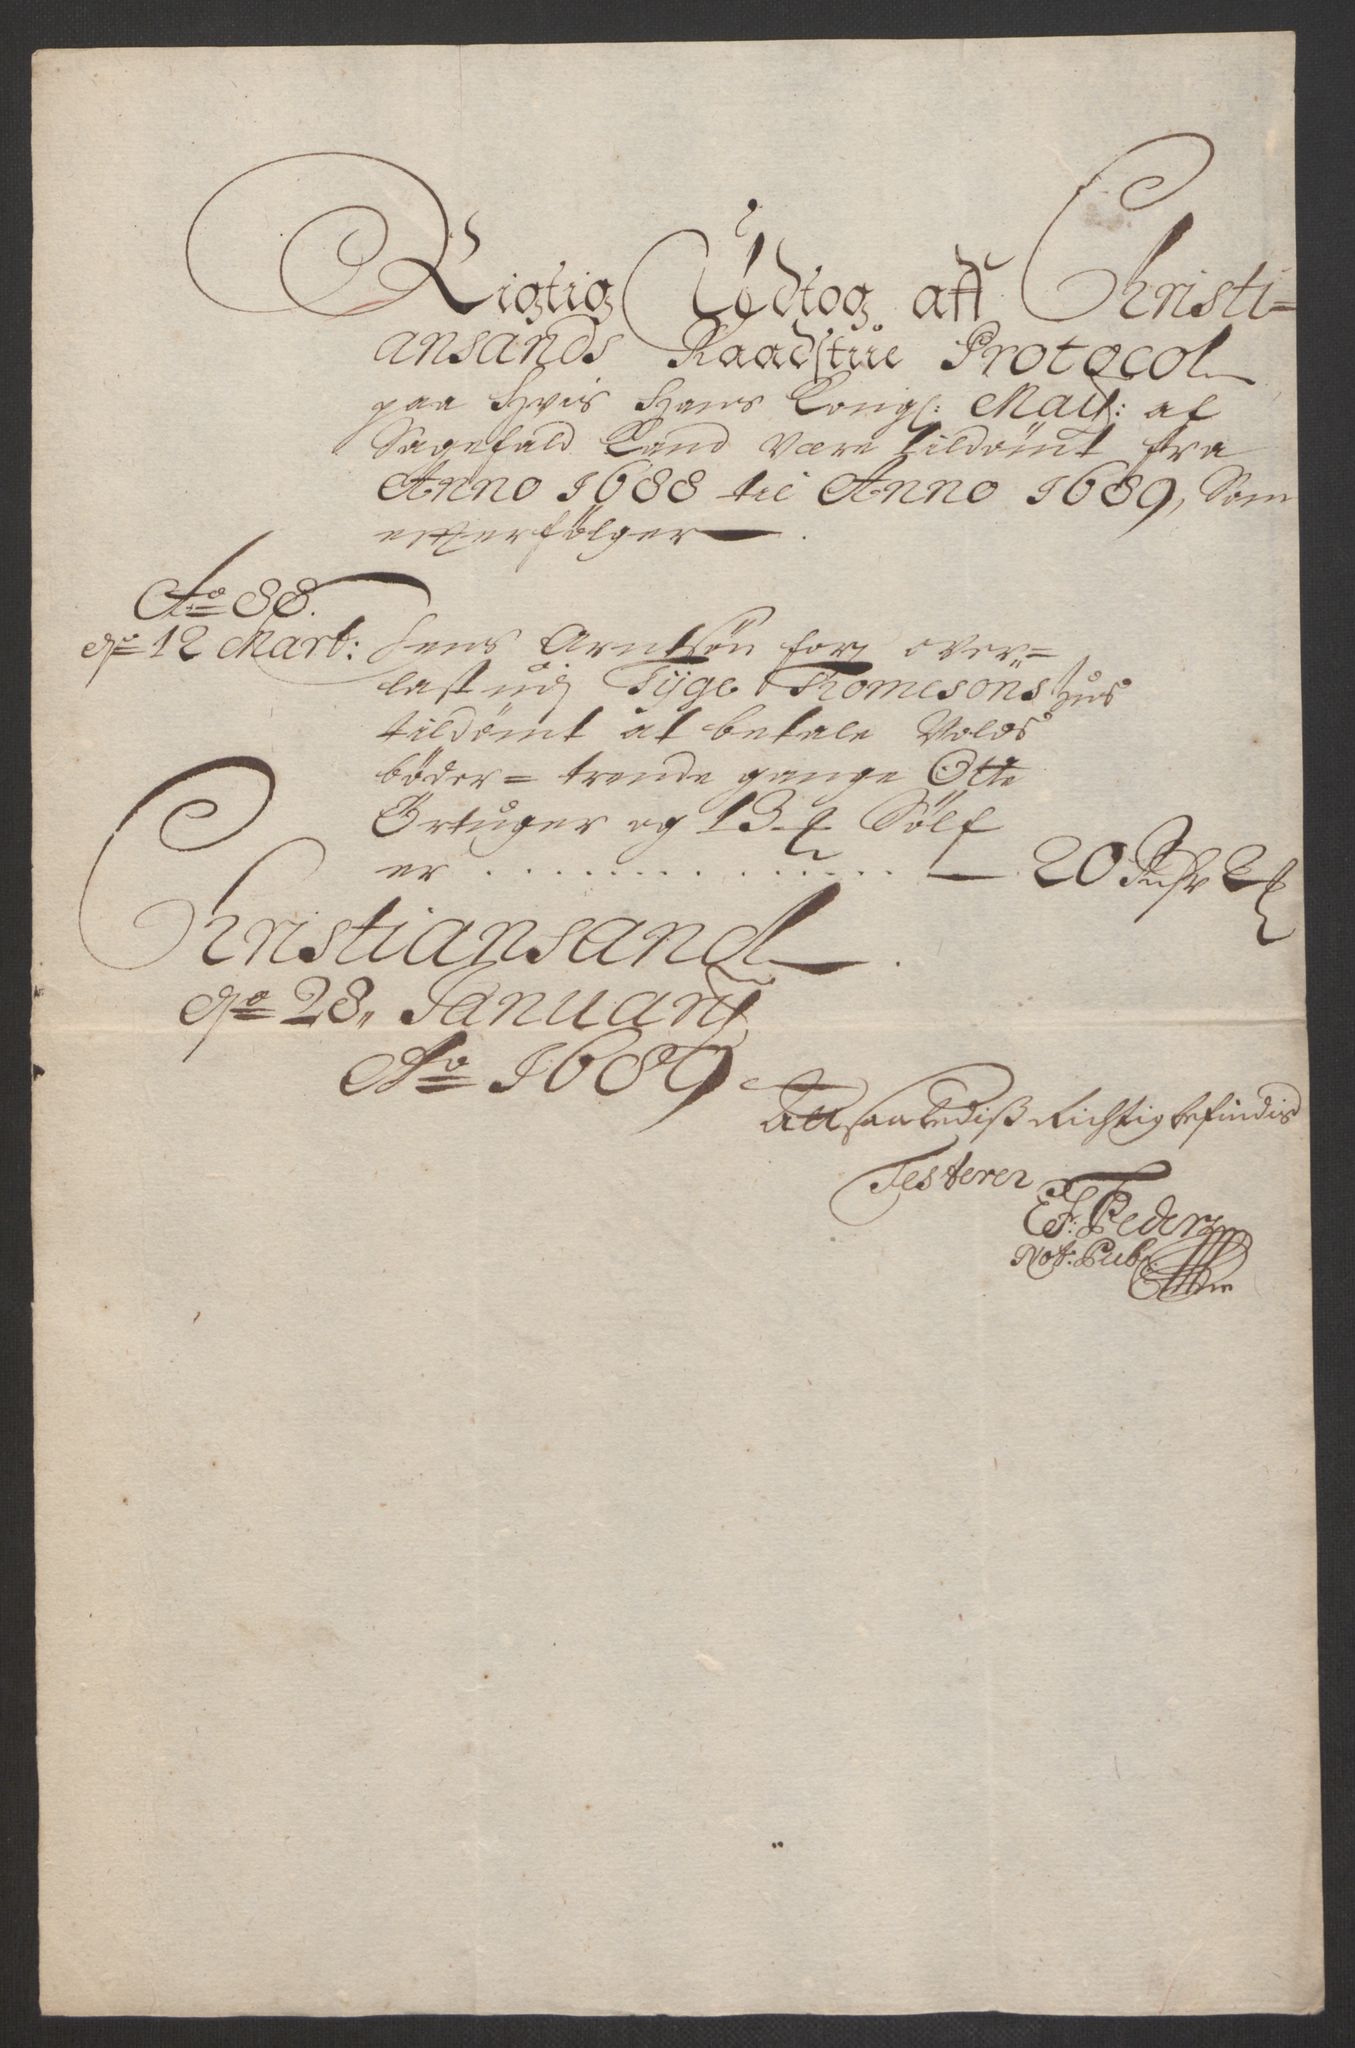 Rigtig Udtog aff Christi=
ansands Raadstue Protocol
paa hvis Hans Kongl: Maij: af
Sagefald Kand være tildømt fra
Anno 1688 til Anno 1689, Som
efterfølger
Ao 88.
do 12 Mart: Jens Arntsøn for over=
last udj Tyge Thomesøns Huus
tildømt at betale Volds
bøder = trende gange Otte
Ørtuger og 13 ß Sølf
er . . . . . . . . . . . . . . 20 Rixdr 2 ß
Christiansand
do 28, January
Ao 1689
Att saaledisß Richtig befindis
Testerer
E. F. Peders
Not: Publ: